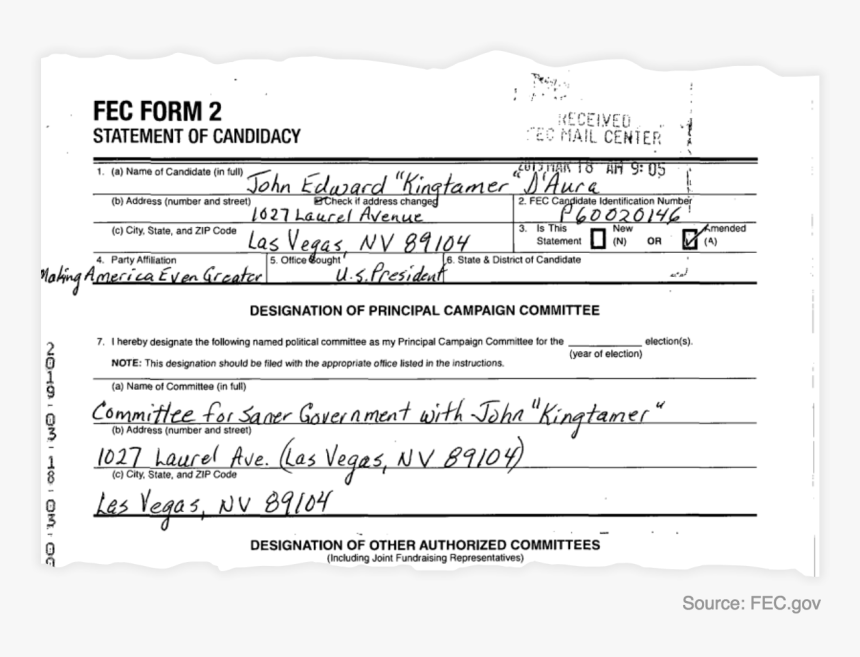 RECEIVED
FEC MAIL CENTER
2019 MAR 18 AM 9:05
FEC FORM 2
STATEMENT OF CANDIDACY
1. (a) Name of Candidate (in full)
John Edward "Kingtamer" D'Aura
(b) Address (number and street) Check if address changed 2. FEC Candidate Identification Number
1027 Laurel Avenue P60020146
(c) City, State, and ZIP Code 3. Is This Statement New (N) OR Amended (A)
Las Vegas, NV 89104
4. Party Affiliation 5. Office Sought 6. State & District of Candidate
Making America Even Greater U.S. President
DESIGNATION OF PRINCIPAL CAMPAIGN COMMITTEE
7. I hereby designate the following named political committee as my Principal Campaign Committee for the election(s).
(year of election)
NOTE: This designation should be filed with the appropriate office listed in the instructions.
(a) Name of Committee (in full)
Committee for Saner Government with John "Kingtamer"
(b) Address (number and street)
1027 Laurel Ave. (Las Vegas, NV 89104)
(c) City, State, and ZIP Code
Las Vegas, NV 89104
DESIGNATION OF OTHER AUTHORIZED COMMITTEES
(Including Joint Fundraising Representatives)
2019-03-18-03-0
Source: FEC.gov